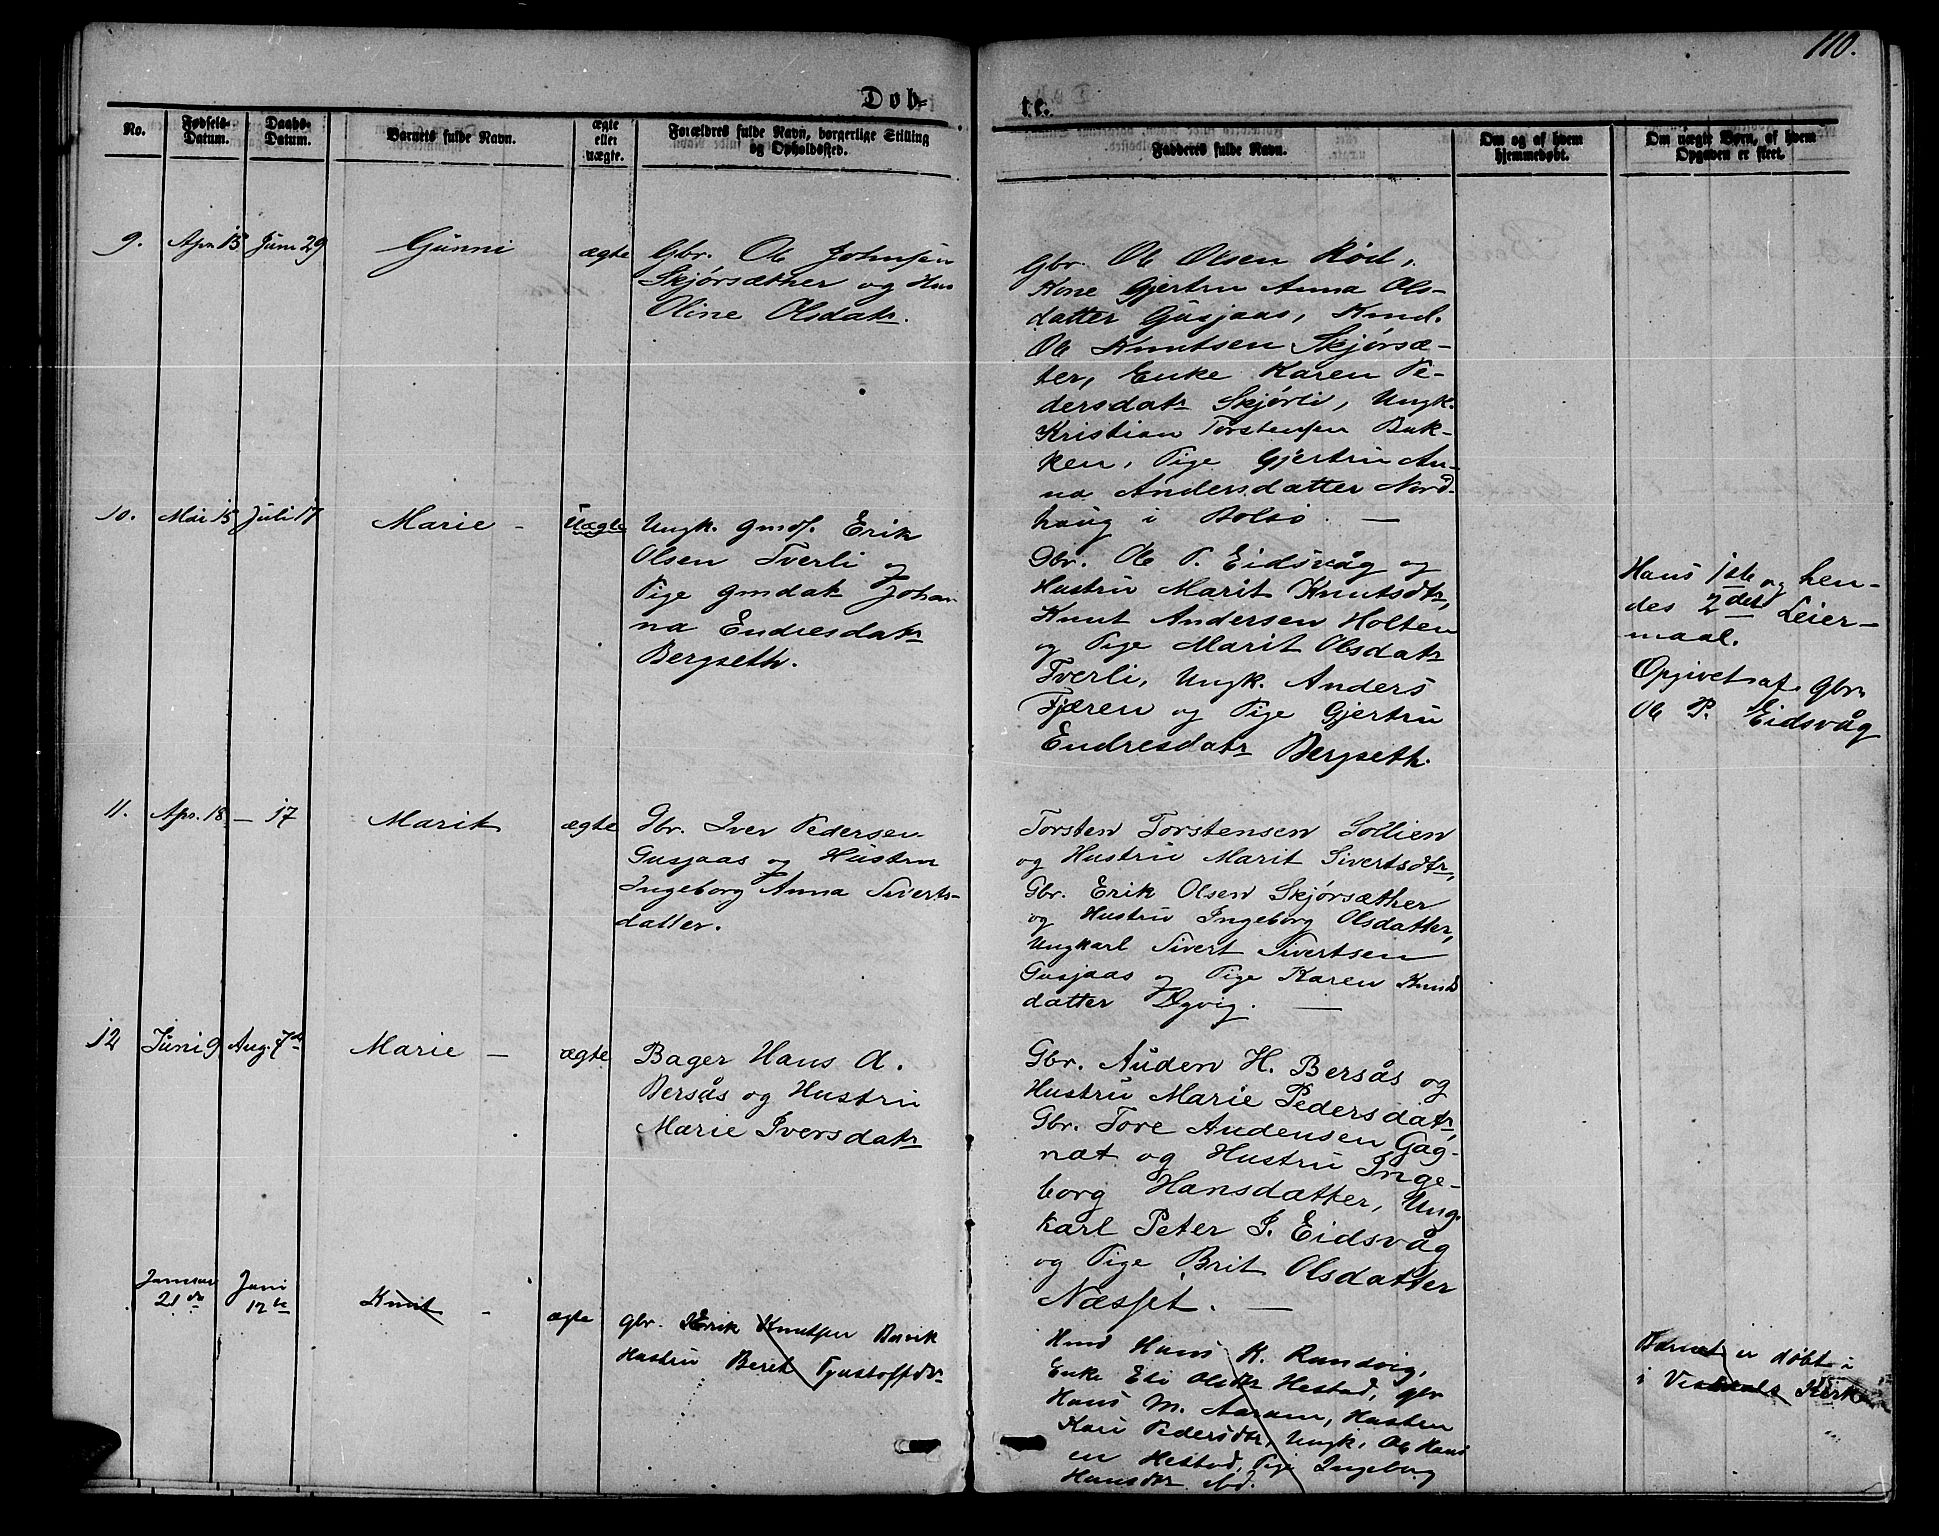 110.
Døb-
te.
No.
Fødsels-
Datum.
Daabs-
Datum.
Barnets fulde Navn.
ægte
eller
uægte.
Forældres fulde Navn, borgerlige Stilling
og Opholdssted.
Faddernes fulde Navn.
Om og af hvem
hjemmedøbt.
Om uægte Børn, af hvem
Opgaven er skeet.
9.
Apr. 15
Juni 29
Gunni
ægte
Gbr. Ole Johnsen
Skjørsæther og Hus
Oline Olsdatr.
Gbr. Ole Olsen Rød,
Kone Gjertru Anna Ols-
datter Gusjaas, Kmd.
Ole Knutsen Skjørsæ-
ter, Enke Karen Pe-
dersdatr Skjørli, Ungk.
Kristian Torstensen Bak-
ken, Pige Gjertru An-
na Andersdatter Nord-
haug i Bolsø. —
10.
Mai 15
Juli 17
Marie -
Uægte
Ungk. gmds. Erik
Olsen Tverli og
Pige gmdatr Johan-
na Endresdatr
Bergseth.
Gbr. Ole P. Eidsvåg og
Hustru Marit Knutsdtr,
Knut Andersen Holten
og Pige Marit Olsdatr
Tverli, Ungk. Anders
Fjæren og Pige Gjertru
Endresdatr Bergseth.
Hans 1ste og hen-
des 2det Leier-
maal.
Opgivet af Gbr.
Ole P. Eidsvåg
11.
Apr. 18
— 17
Marit
ægte
Gbr. Iver Pedersen
Gusjaas og Hustru
Ingeborg Anna Siverts-
datter.
Torsten Torstensen Sollien
og Hustru Marit Sivertsdtr,
Gbr. Erik Olsen Skjørsæther
og Hustru Ingeborg Olsdatter,
Ungkarl Sivert Sivertsen
Gusjaas og Pige Karen Knuds
datter Øgvig. —
12
Juni 9
Aug. 7de
Marie —
ægte
Bager Hans A.
Bersås og Hustru
Marie Iversdatr
Gbr. Auden H. Bersås og
Hustru Marie Pedersdatr,
Gbr. Tore Audensen Gag-
nat og Hustru Inge-
borg Hansdatter, Ung-
karl Peter I. Eidsvåg
og Pige Brit Olsdatter
Næsset. —
Januar
21de
Juni
12te
Knut -
ægte
gbr. Erik Knutsen
Hustru Berit
Hmd Hans K. Randvig,
Enke Eli Olsdtr Hestad, gbr
Hans M. Aaram, Hustru
Kari Pedersdtr, Ungk. Ole Hans
en Hestad, Pige Ingeborg
Hansdtr ibd.
Barnet er døbt i
i Vistdals Kirke